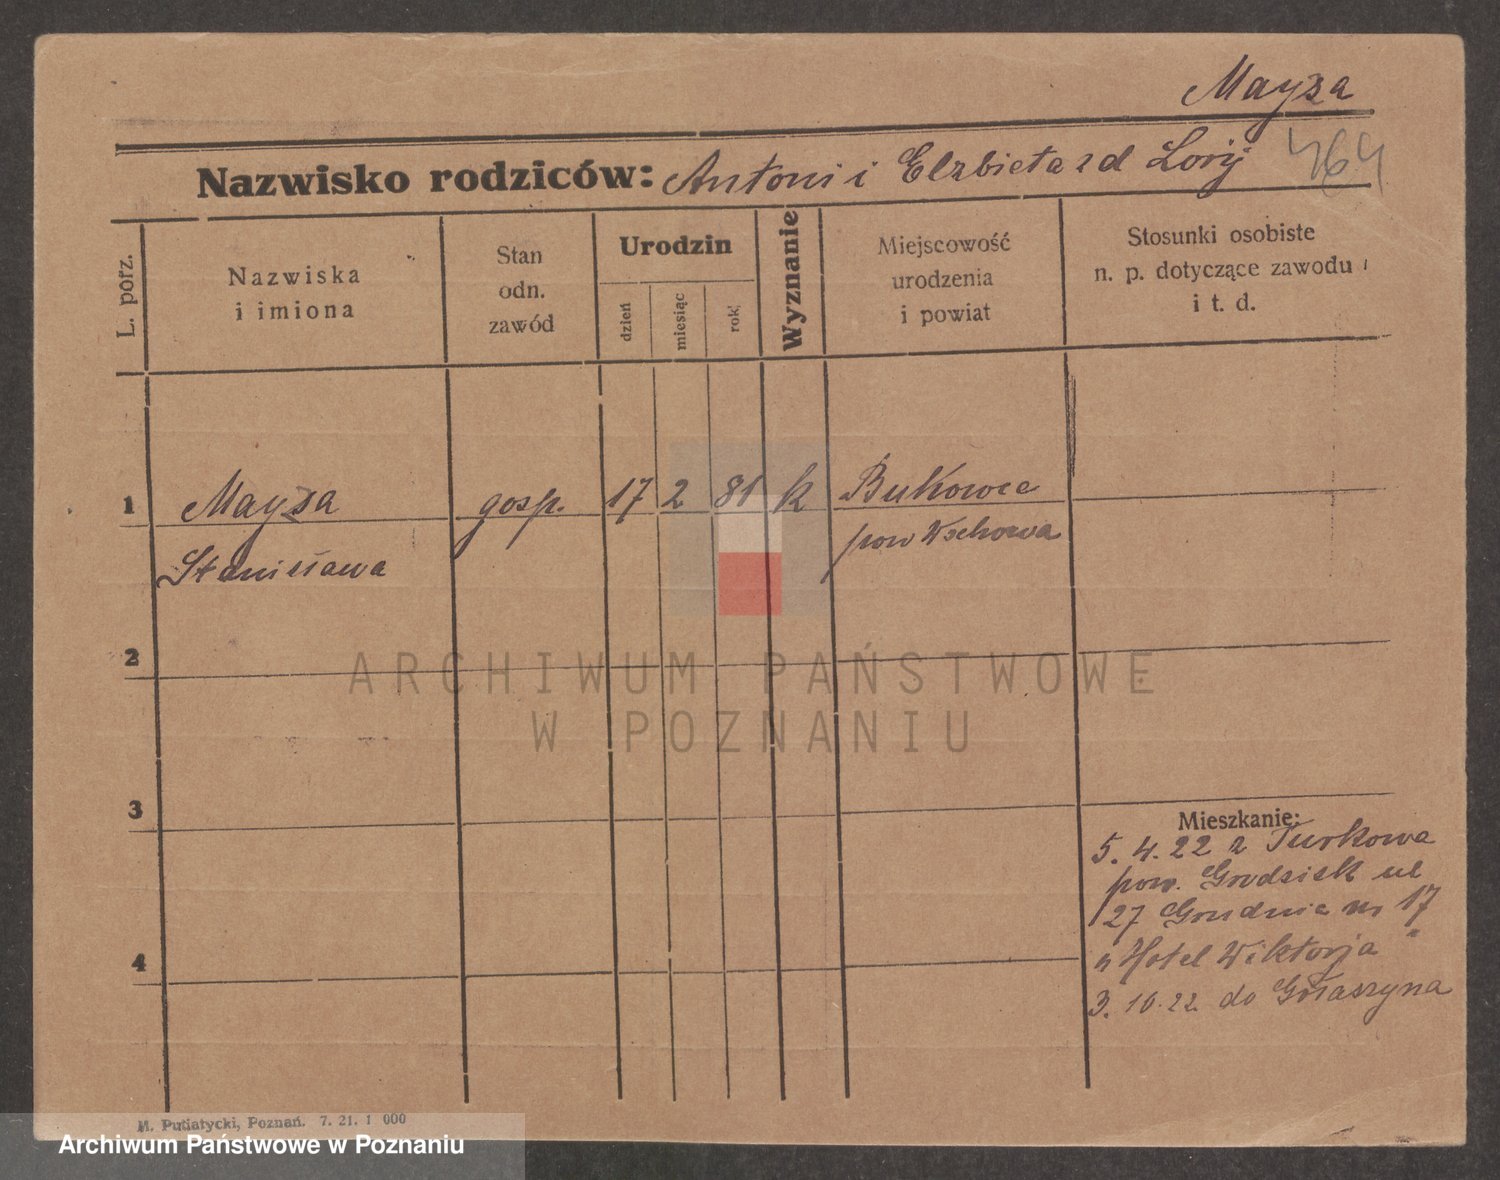 Maysa
Nazwisko rodziców: Antoni i Elzbieta z d Lorij
464
L. porz.
Nazwiska
i imiona
Stan
odn.
zawód
Urodzin
dzień
miesiąc
rok
Wyznanie
Miejscowość
urodzenia
i powiat
Stosunki osobiste
n. p. dotyczące zawodu
i t. d.
1
Maysa
Stanisława
gosp.
17
2
81
k
Bukowce
pow Wschowa
2
ARCHIWUM PAŃSTWOWE
W POZNANIU
3
Mieszkanie:
5. 4. 22 z Turkowa
pow. Grodzisk ul
27 Grudnia nr 17
Hotel Wiktorja
3. 10. 22. do Gołaszyna
4
M. Putiatycki, Poznań. 7. 21. 1 000
Archiwum Państwowe w Poznaniu